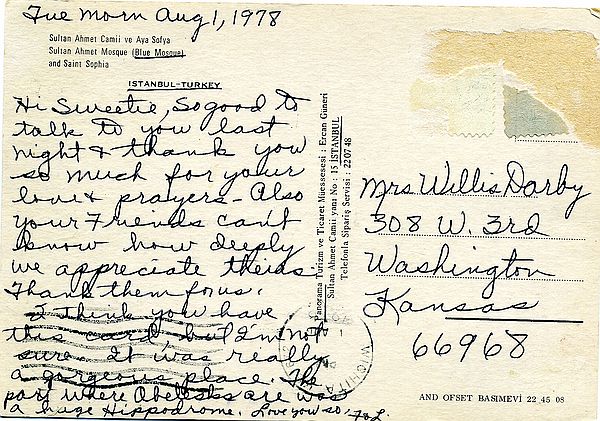 Tue Morn Aug 1, 1978
Sultan Ahmet Camii ve Aya Sofya
Sultan Ahmet Mosque (Blue Mosque)
and Saint Sophia
ISTANBUL-TURKEY
Hi Sweetie, So good to
talk to you last
night & thank you
so much for your
love & prayers - Also
your Friends can't
know how deeply
we appreciate theirs.
Thank them for us.
I think you have
this card, but I'm not
sure. It was really
a gorgeous place. The
part where Obelisks are was
a huge Hippodrome. Love you so,
Panorama Turizm ve Ticaret Müessesesi : Ercan Güneri
Sultan Ahmet Camii yanı No : 15 İSTANBUL
Telefonla Sipariş Servisi : 22 07 48
Mrs Willis Darby
308 W. 3rd
Washington
Kansas
66968
WICHITA
AND OFSET BASIMEVİ 22 45 08